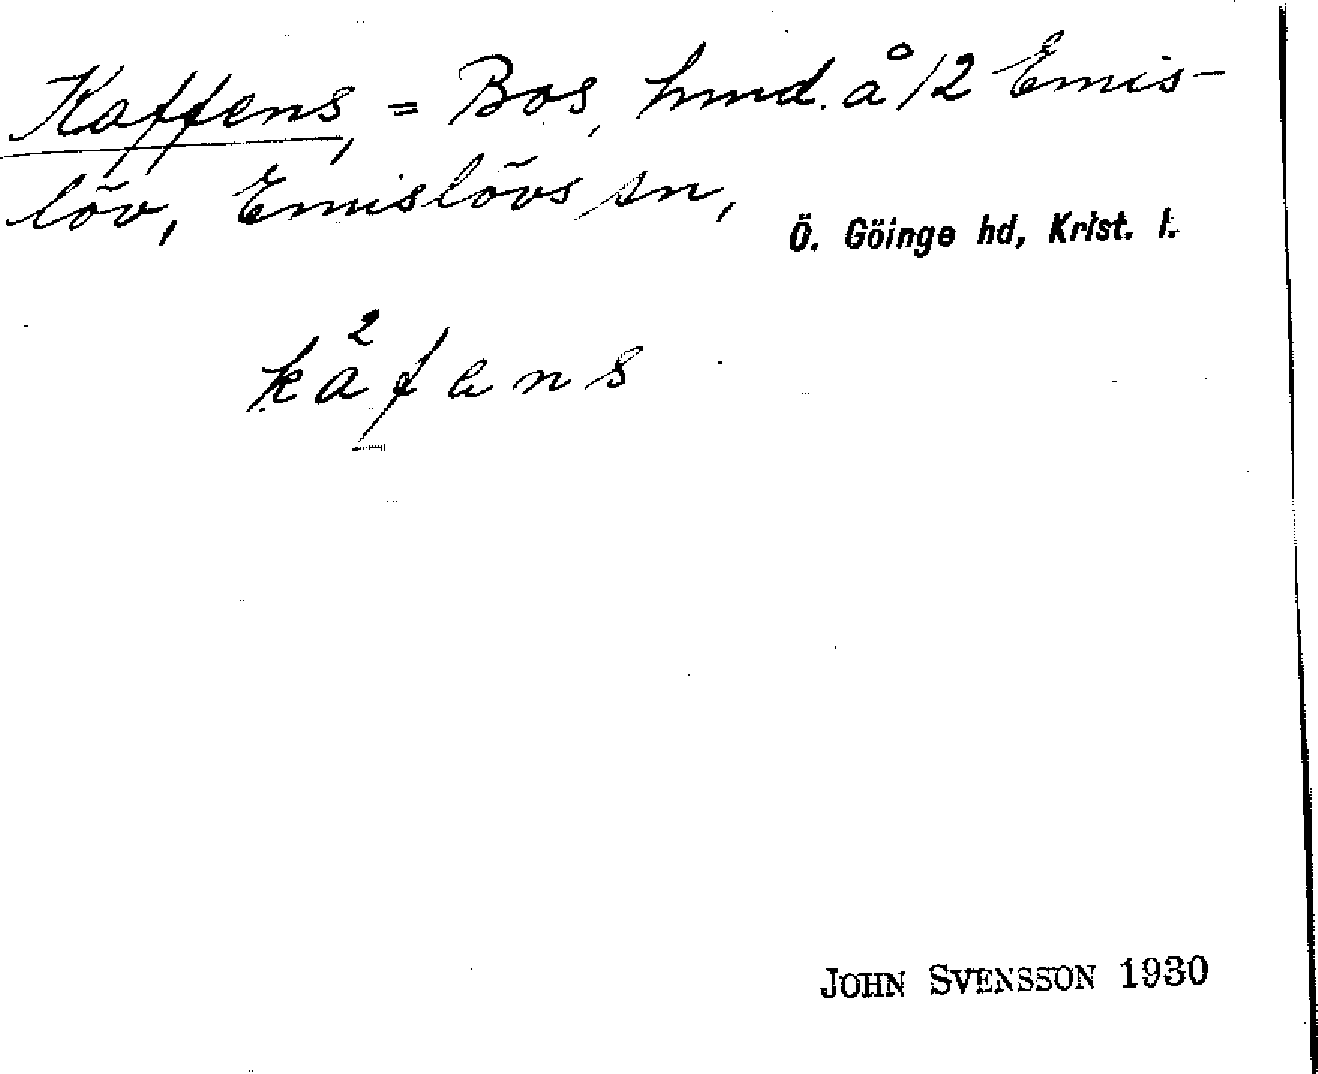 Kaffens, = Bos, hmd. å 12 Emis-
löv, Emislövs sn, Ö. Göinge hd, Krist. l.
kå²fens
JOHN SVENSSON 1930